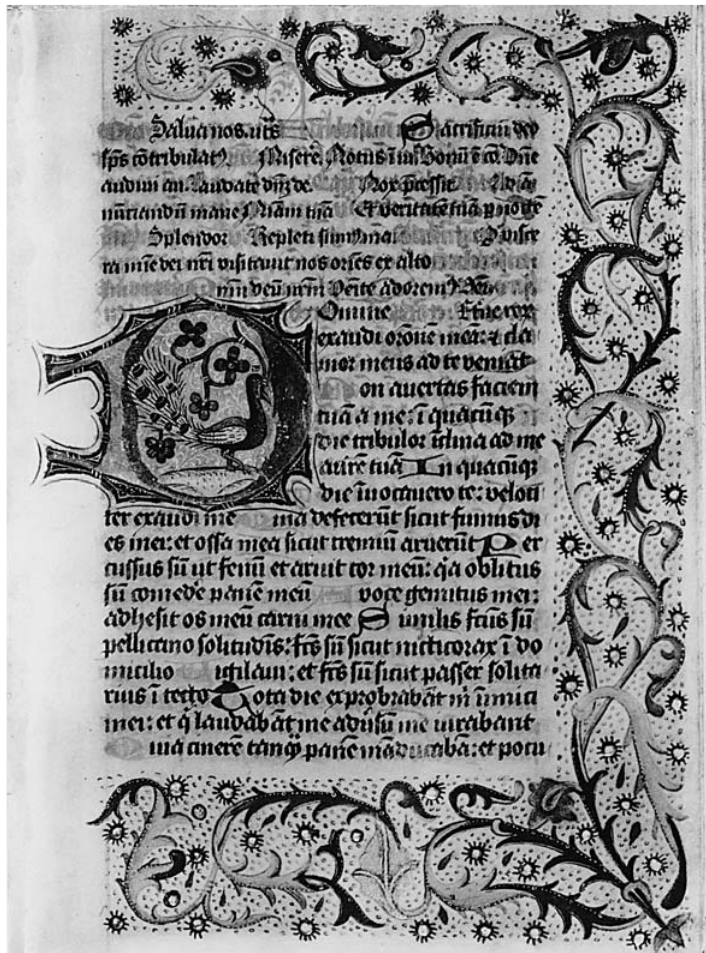 Salva nos. uts Sacrificiū deo
sps cōtribulat9. Misere. Notus ī iud Bonū ē cō. Dñe
audivi an. Laudate dñz de. Nox p̄cessit.
nūtiandū mane Miām tuā Et veritatē tuā p noctē
Splendor Repleti sum9 mā Pvisce
ra mīe dei nr̄i visitavit nos oriēs ex alto
Venite adorem9
Omine
exaudi orōnē meā: & cla
mor meus ad te veniat
on avertas faciem
tuā a me: ī quacūq3
die tribulor īclina ad me
aurē tuā In quacūq3
die īvocavero te: veloci
ter exaudi me uia defecerūt sicut fumus di
es mei: et ossa mea sicut cremiū aruerūt Per
cussus sū ut fenū et aruit cor meū: q̄a oblitus
sū comedē panē meū voce gemitus mei:
adhesit os meū carni mee Similis fcūs sū
pellicano solitudīs: fcs sū sicut nicticorax ī do
micilio igilavi: et fcs sū sicut passer solita
rius ī tecto Tota die exprobrabāt m̄ īimici
mei: et q̄ laudabāt me advsū me iurabant
uia cinerē tanq̄ panē māducabā: et potū